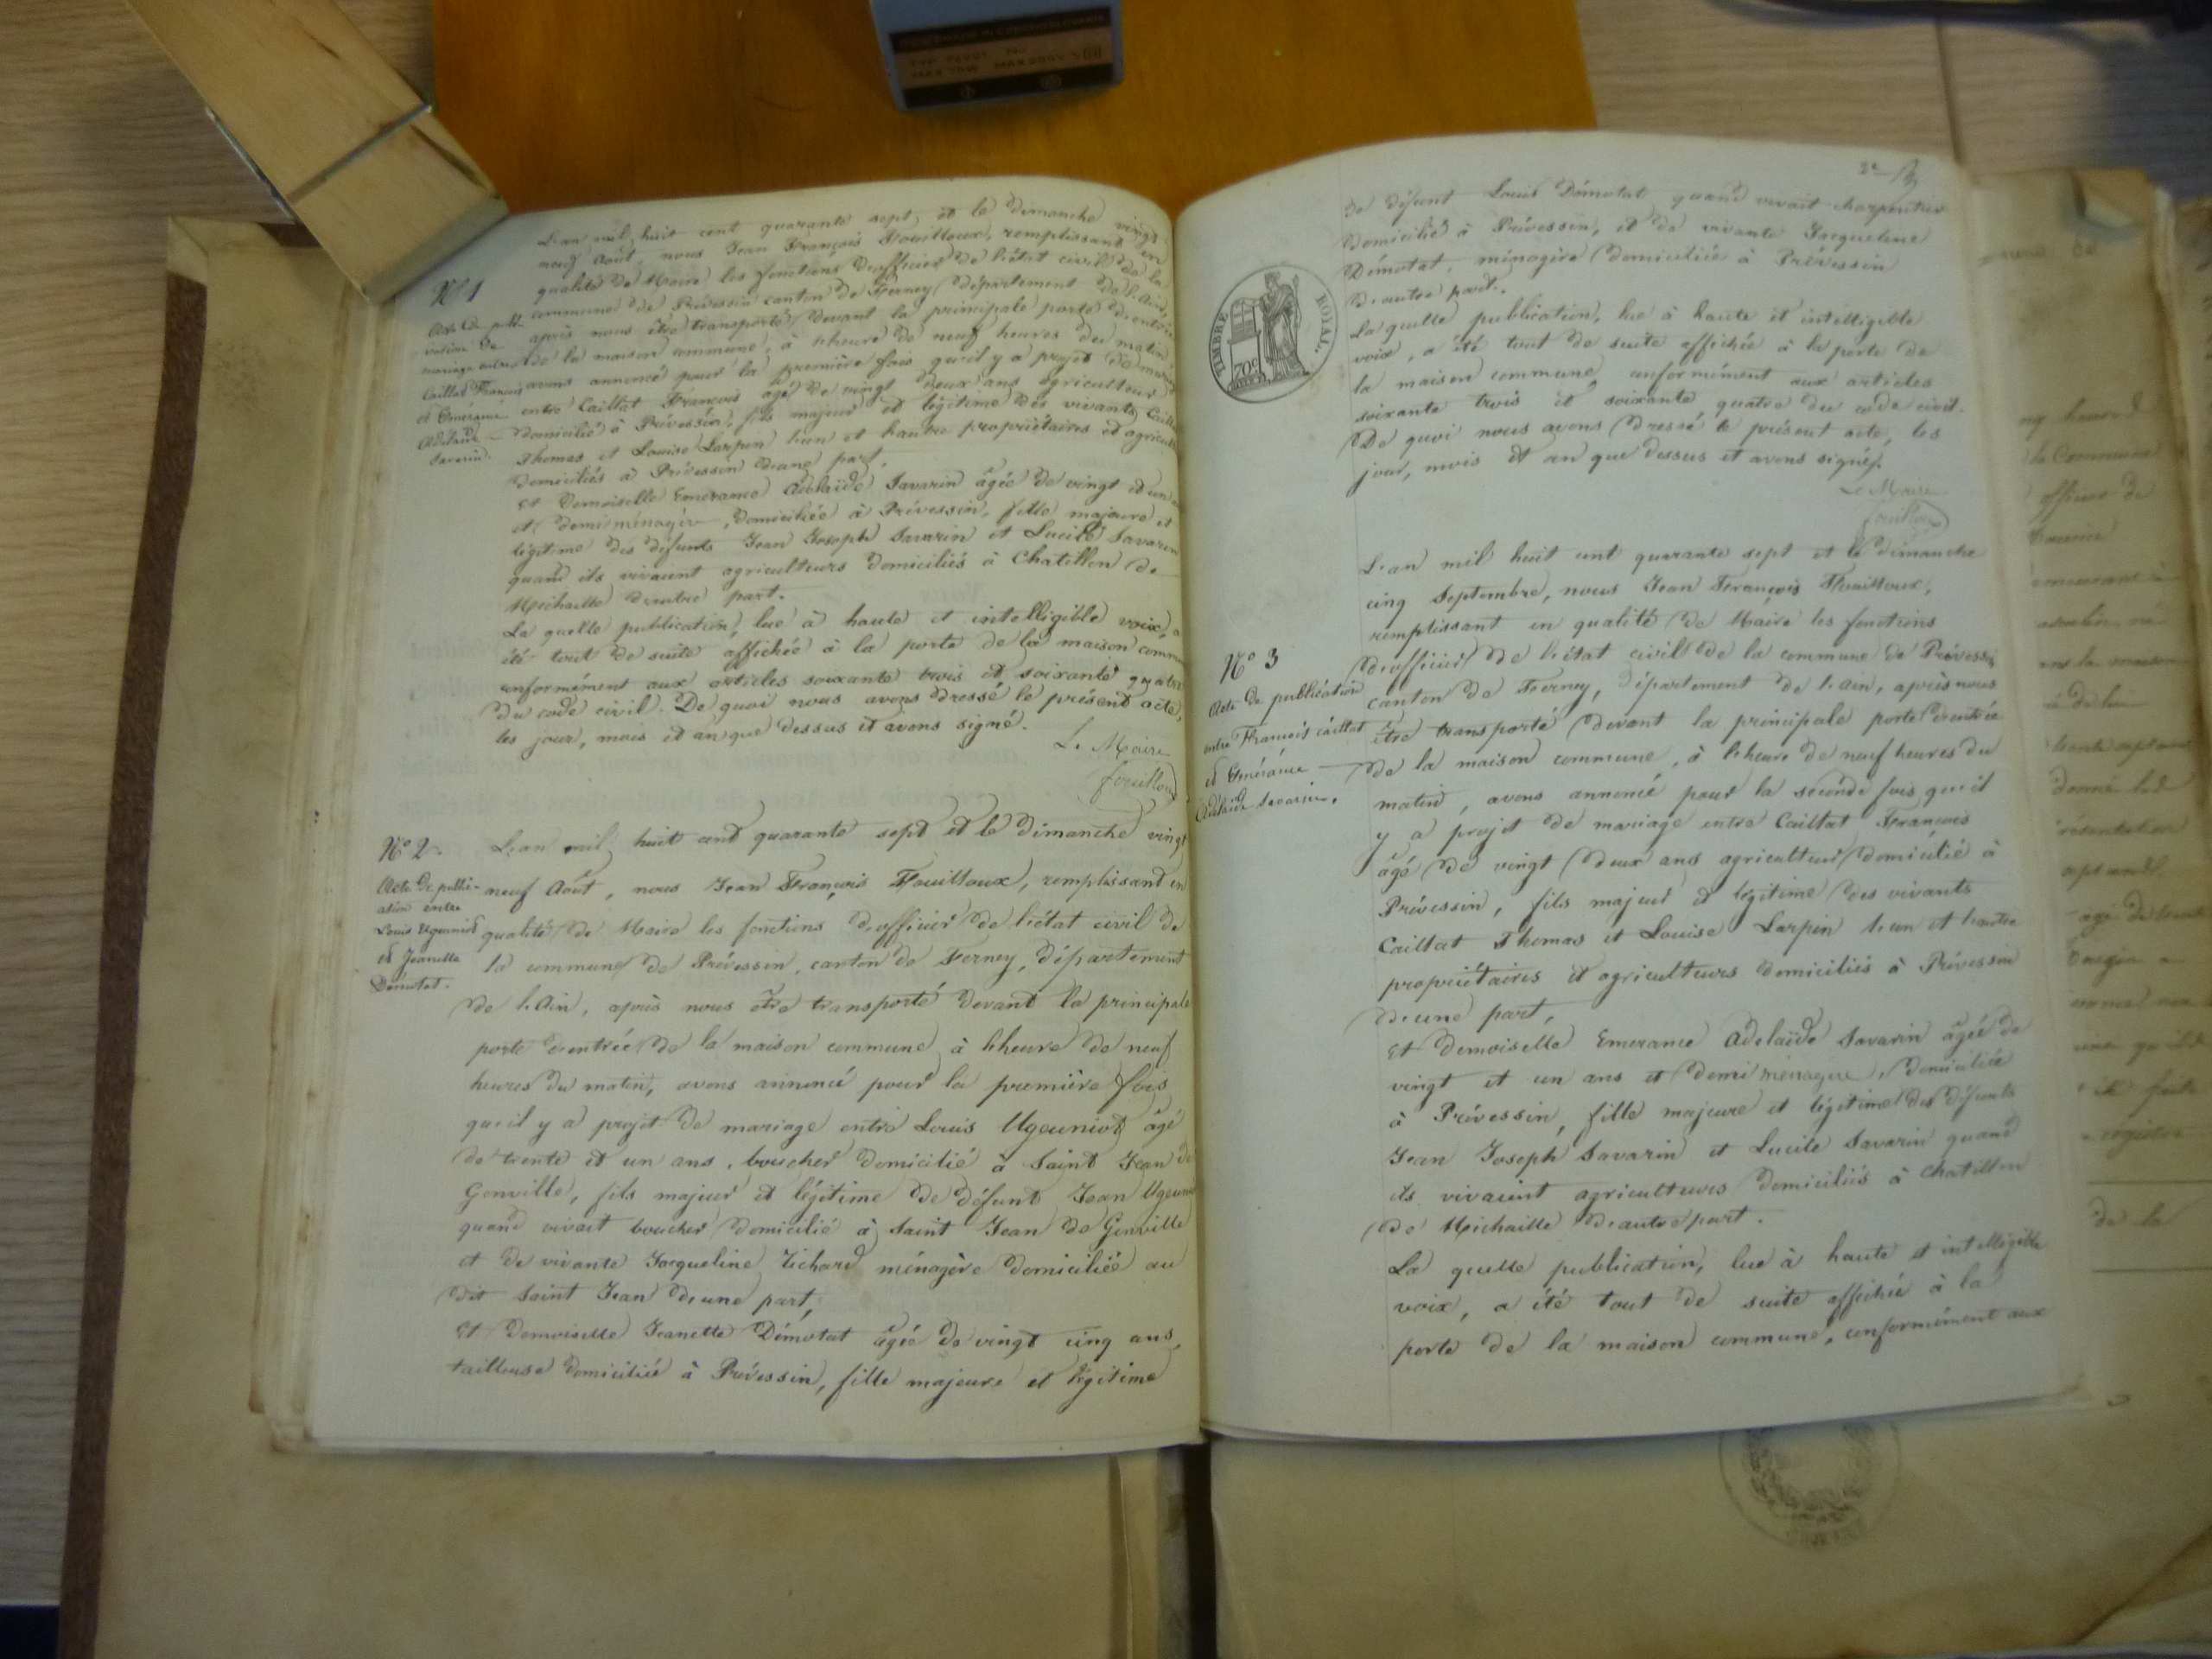 L'an mil huit cent quarante sept, et le dimanche vingt
neuf Août, nous Jean François Fouilloux, remplissant en
qualité de Maire les fonctions d'officier de l'état civil de la
commune de Prévessin canton de Ferney, département de l'Ain,
après nous être transporté devant la principale porte d'entrée
de la maison commune, à l'heure de neuf heures du matin
avons annoncé pour la première fois qu'il y a projet de mariage
entre Caillat François âgé de vingt deux ans agriculteur
domicilié à Prévessin, fils majeur et légitime des vivants Caillat
Thomas et Louise Larpin l'un et l'autre propriétaires et agricult
domiciliés à Prévessin d'une part,
Et Demoiselle Emerance Adelaïde Savarin âgée de vingt et un
et demi ménagère, domiciliée à Prévessin, fille majeure et
légitime des défunts Jean Joseph Savarin et Lucile Savarin
quand ils vivaient agriculteurs domiciliés à Chatillon de
Michaille d'autre part.
La quelle publication, lue à haute et intelligible voix, a
été tout de suite affichée à la porte de la maison commu
conformément aux articles soixante trois et soixante quatre
du code civil. De quoi nous avons dressé le présent acte,
les jour, mois et an que dessus et avons signé.
Le Maire
fouilloux
N° 1
Acte de publi-
cation de
mariage entre
Caillat François
et Emerance
Adélaïde
Savarin.
N° 2.
Acte de publi-
cation entre
Louis Ugeuniot
et Jeanette
Démotat.
L'an mil huit cent quarante sept et le dimanche vingt
neuf Août, nous Jean François Fouilloux, remplissant en
qualité de Maire les fonctions d'officier de l'état civil de
la commune de Prévessin, canton de Ferney, département
de l'Ain, après nous être transporté devant la principale
porte d'entrée de la maison commune, à l'heure de neuf
heures du matin, avons annoncé pour la première fois
qu'il y a projet de mariage entre Louis Ugeuniot âgé
de trente et un ans, boucher domicilié à Saint Jean de
Gonville, fils majeur et légitime de défunt Jean Ugeunio
quand vivait boucher domicilié à Saint Jean de Gonville
et de vivante Jacqueline Richard ménagère domiciliée au
dit Saint Jean d'une part,
Et demoiselle Jeanette Démotat âgée de vingt cinq ans,
tailleuse domiciliée à Prévessin, fille majeure et légitime
2e
de défunt Louis Démotat quand vivait charpentier
domicilié à Prévessin, et de vivante Jacqueline
Démotat, ménagère domiciliée à Prévessin
d'autre part.
La quelle publication, lue à haute et intelligible
voix, a été tout de suite affichée à la porte de
la maison commune, conformément aux articles
soixante trois et soixante quatre du code civil.
De quoi nous avons dressé le présent acte, les
jour, mois et an que dessus et avons signé.
Le Maire
fouilloux
TIMBRE ROYAL.
70c
N° 3
Acte de publication
entre François Caillat
et Emérance
Adélaïde Savarin.
L'an mil huit cent quarante sept et le dimanche
cinq Septembre, nous Jean François Fouilloux,
remplissant en qualité de Maire les fonctions
d'officier de l'état civil de la commune de Prévessin
canton de Ferney, département de l'Ain, après nous
être transporté devant la principale porte d'entrée
de la maison commune, à l'heure de neuf heures du
matin, avons annoncé pour la seconde fois qu'il
y a projet de mariage entre Caillat François
âgé de vingt deux ans agriculteur domicilié à
Prévessin, fils majeur et légitime des vivants
Caillat Thomas et Louise Larpin l'un et l'autre
propriétaires et agriculteurs domiciliés à Prévessin
d'une part,
Et Demoiselle Emerance Adelaïde Savarin âgée de
vingt et un ans et demi ménagère, domiciliée
à Prévessin, fille majeure et légitime des défunts
Jean Joseph Savarin et Lucile Savarin quand
ils vivaient agriculteurs domiciliés à Chatillon
de Michaille d'autre part.
La quelle publication, lue à haute et intelligible
voix, a été tout de suite affichée à la
porte de la maison commune, conformément aux